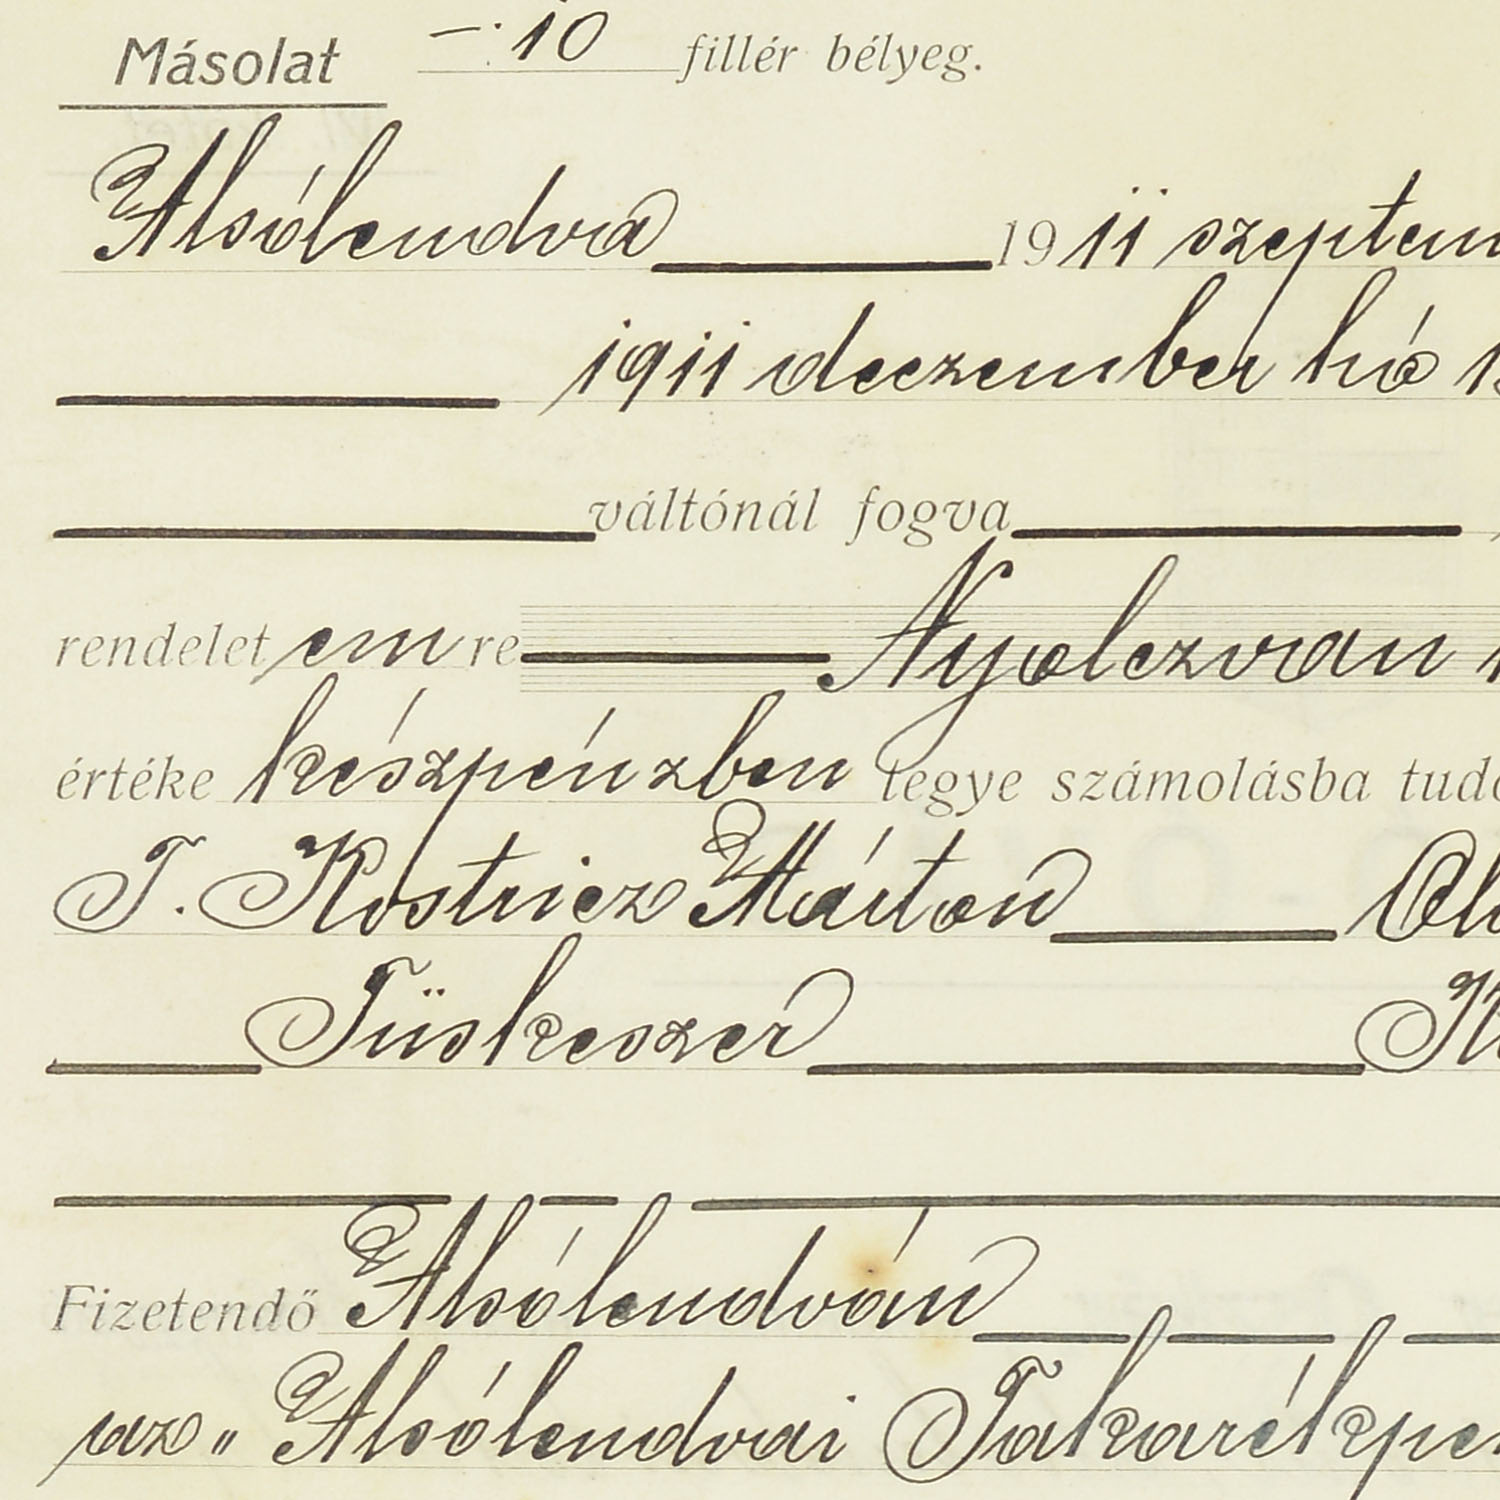 Másolat —·10 fillér bélyeg.
Alsólendva 1911 szeptem
1911 deczember hó 1
váltónál fogva
rendelet em re Nyolczvan
értéke készpénzben tegye számolásba tudó
T. Kostricz Márton
Tüskeszer
Fizetendő Alsólendván
az „ Alsólendvai Takarékpén